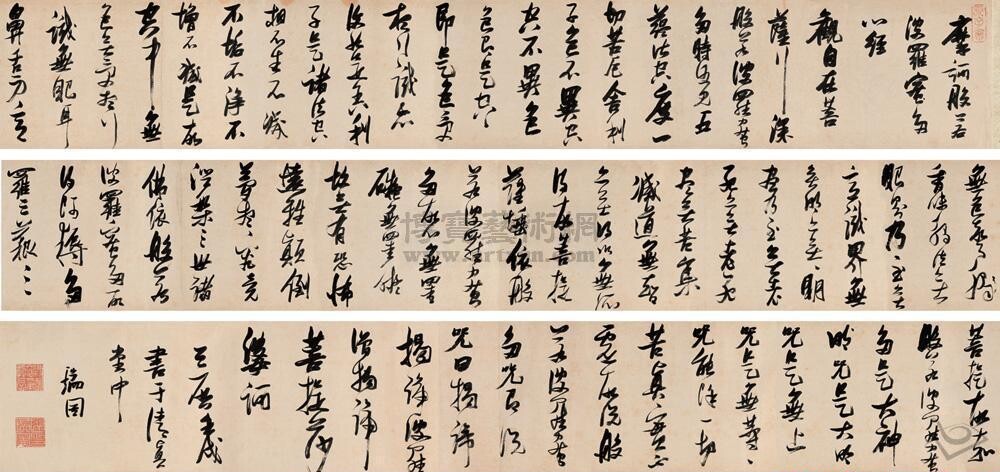 摩訶般若
波羅蜜多
心經
觀自在菩
薩行深
般若波羅蜜
多時照見五
蘊皆空度一
切苦厄舍利
子色不異空
空不異色
色即是空空
即是色受
想行識亦
復如是舍利
子是諸法空
相不生不滅
不垢不淨不
增不減是故
空中無
色無受想行
識無眼耳
鼻舌身意
無色聲
香味觸法無
眼界乃至無
意識界無
無明亦無無明
盡乃至無老
死亦無老死
盡無苦集
滅道無智
亦無得以無所
得故菩提
薩埵依般
若波羅蜜
多故心無罣
礙無罣礙
故無有恐怖
遠離顛倒
夢想究竟
涅槃三世諸
佛依般若
波羅蜜多故
得阿耨多
羅三藐三
菩提故知
般若波羅蜜
多是大神
咒是大明
咒是無上
咒是無等等
咒能除一切
苦真實不
虛故說般
若波羅蜜
多咒即說
咒曰揭諦
揭諦波羅
僧揭諦
菩提薩
婆訶
書于清真
堂中
瑞圖
博寶藝術網
www.artxun.com